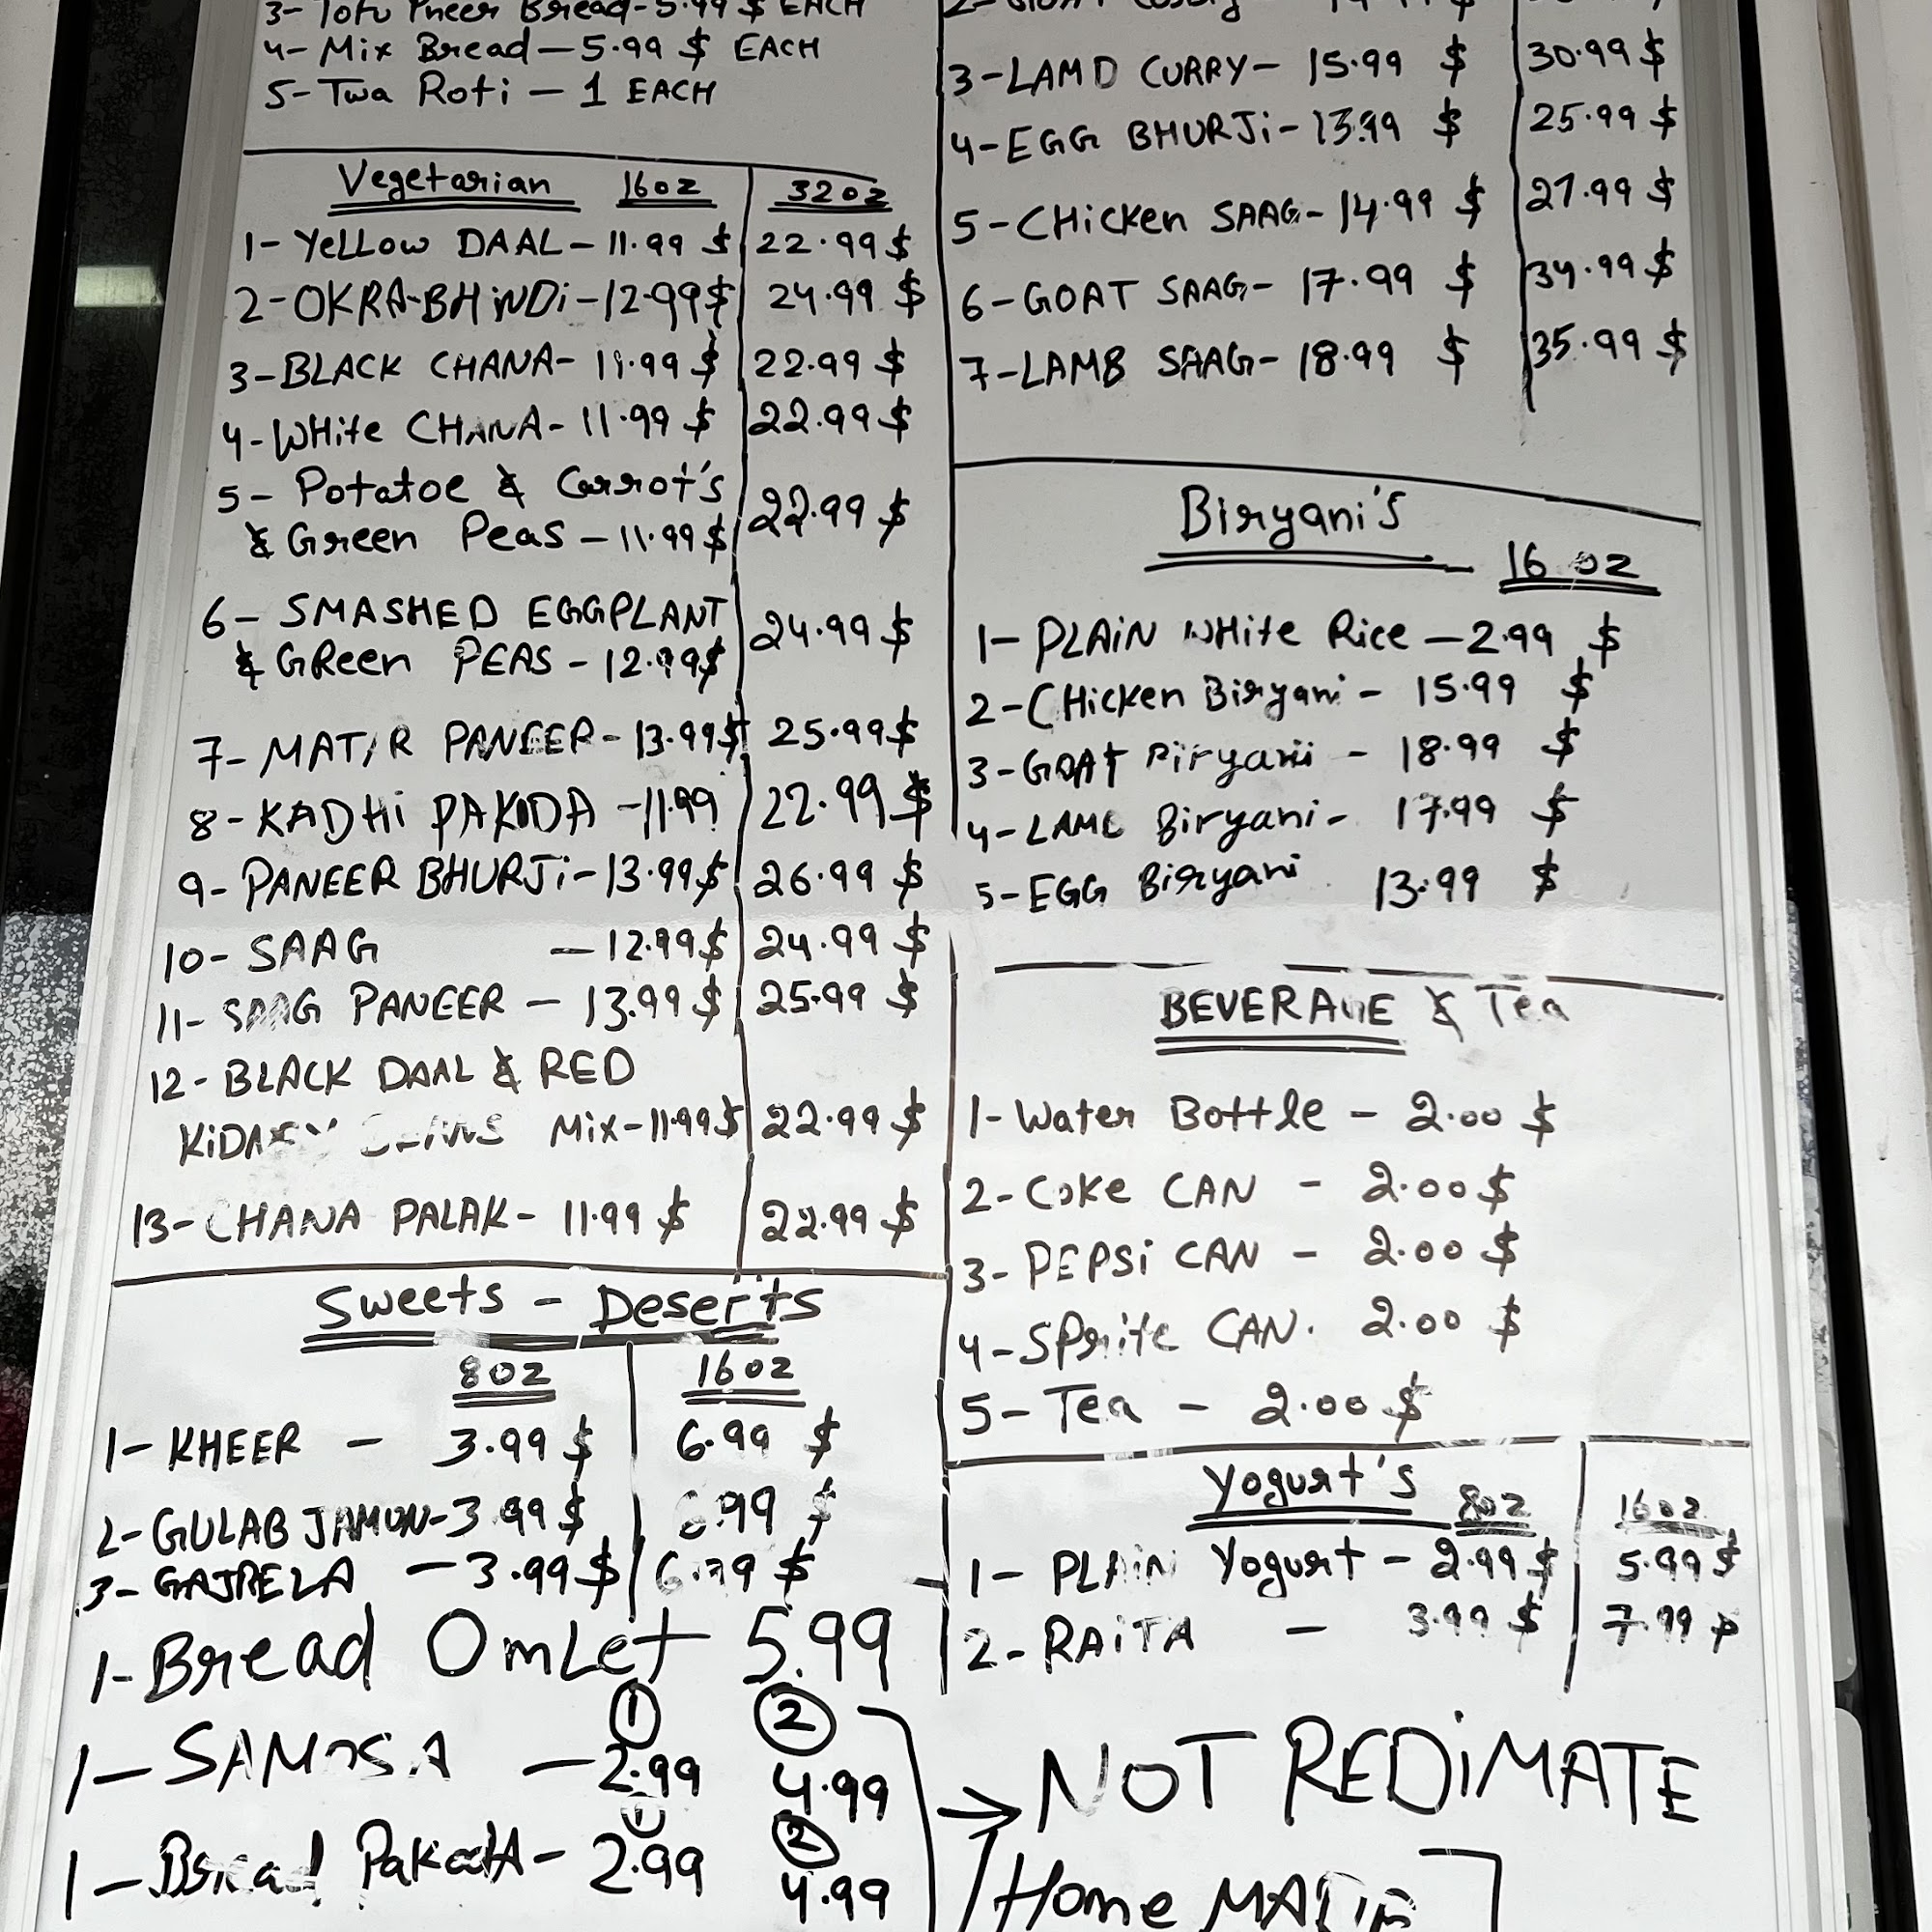 3- Tofu Pneer Bread-5.99 $ EACH
4- Mix Bread-5.99 $ EACH
5-Twa Roti - 1 EACH
Vegetarian 16oz 32oz
1- YeLLow DAAL- 11.99 $ 22.99 $
2-OKRA-BHiNDi-12.99$ 24.99 $
3-BLACK CHANA- 11.99 $ 22.99 $
4-WHite CHANA- 11.99 $ 22.99 $
5- Potatoe & Carrot's
& Green Peas -11.99$ 22.99 $
6- SMASHED EGGPLANT
& GReen PEAS - 12.99$ 24.99 $
7- MATAR PANEER- 13.99$ 25.99$
8-KADHi PAKODA -11.99 22.99 $
9- PANEER BHURJi-13.99$ 26.99 $
10- SAAG -12.99$ 24.99 $
11- SAAG PANEER - 13.99 $ 25.99 $
12- BLACK DAAL & RED
KiDNEY BEANS Mix-11.99$ 22.99 $
13-CHANA PALAK- 11.99 $ 22.99 $
Sweets - Deserts
8oz 16oz
1- KHEER - 3.99 $ 6.99 $
2-GULAB JAMUN-3.99 $ 6.99 $
3- GAJRELA -3.99 $ 6.99 $
1-Bread OmLet 5.99
1 2
1-SAMOSA -2.99 4.99
1 2
1-Bread PakodA- 2.99 4.99
3-LAMD CURRY- 15.99 $ 30.99 $
4-EGG BHURJi-13.99 $ 25.99 $
5-CHicKen SAAG-14.99 $ 27.99 $
6-GOAT SAAG- 17.99 $ 34.99 $
7-LAMB SAAG- 18.99 $ 35.99 $
Biryani's
16 oz
1- PLAiN WHite Rice -2.99 $
2-CHicKen Biryani - 15.99 $
3-GOAT Biryani - 18.99 $
4-LAMB Biryani- 17.99 $
5-EGG Biryani 13.99 $
BEVERAGE & Tea
1-Water Bottle - 2.00 $
2-Coke CAN - 2.00 $
3-PEPSi CAN - 2.00 $
4-SPrite CAN. 2.00 $
5-Tea - 2.00 $
Yogurt's 8oz 16oz
1- PLAiN Yogurt - 2.99 $ 5.99 $
2-RAiTA - 3.99 $ 7.99 $
NOT REDiMATE
Home MADE